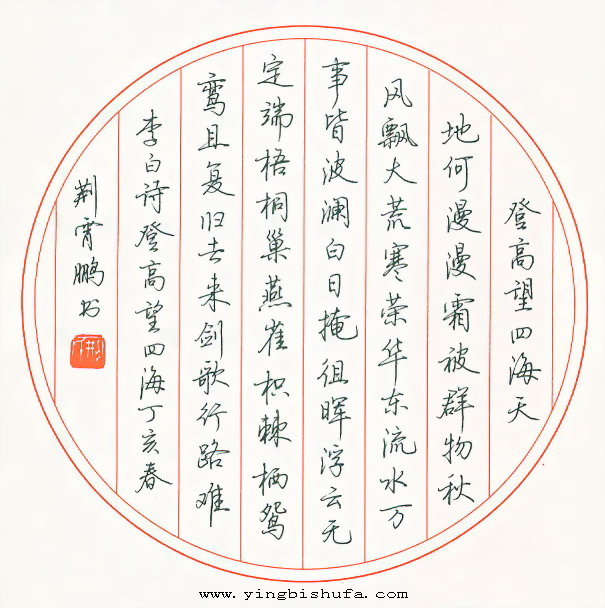 登高望四海天
地何漫漫霜被群物秋
风飘大荒寒荣华东流水万
事皆波澜白日掩徂晖浮云无
定端梧桐巢燕雀枳棘栖鸳
鸾且复归去来剑歌行路难
李白诗登高望四海丁亥春
荆霄鹏书
荆
www.yingbishufa.com